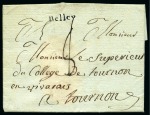 Belley
Monsieur
Monsieur le Superieur
du College de Tournon
en vivarais
a Tournon